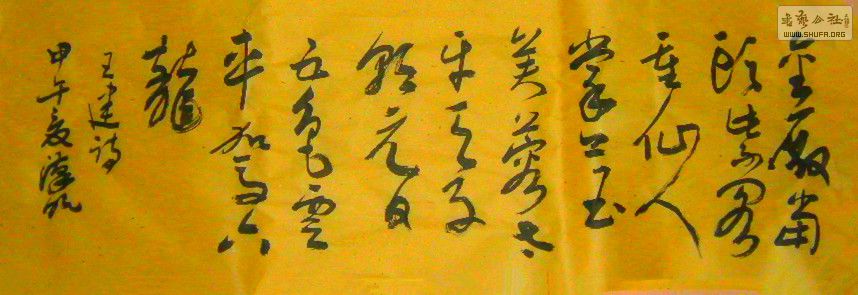 金殿當
頭紫閣
重仙人
掌上玉
芙蓉太
平天子
朝元日
五色雲
車駕六
龍
王建詩
甲午夏
书艺公社
WWW.SHUFA.ORG